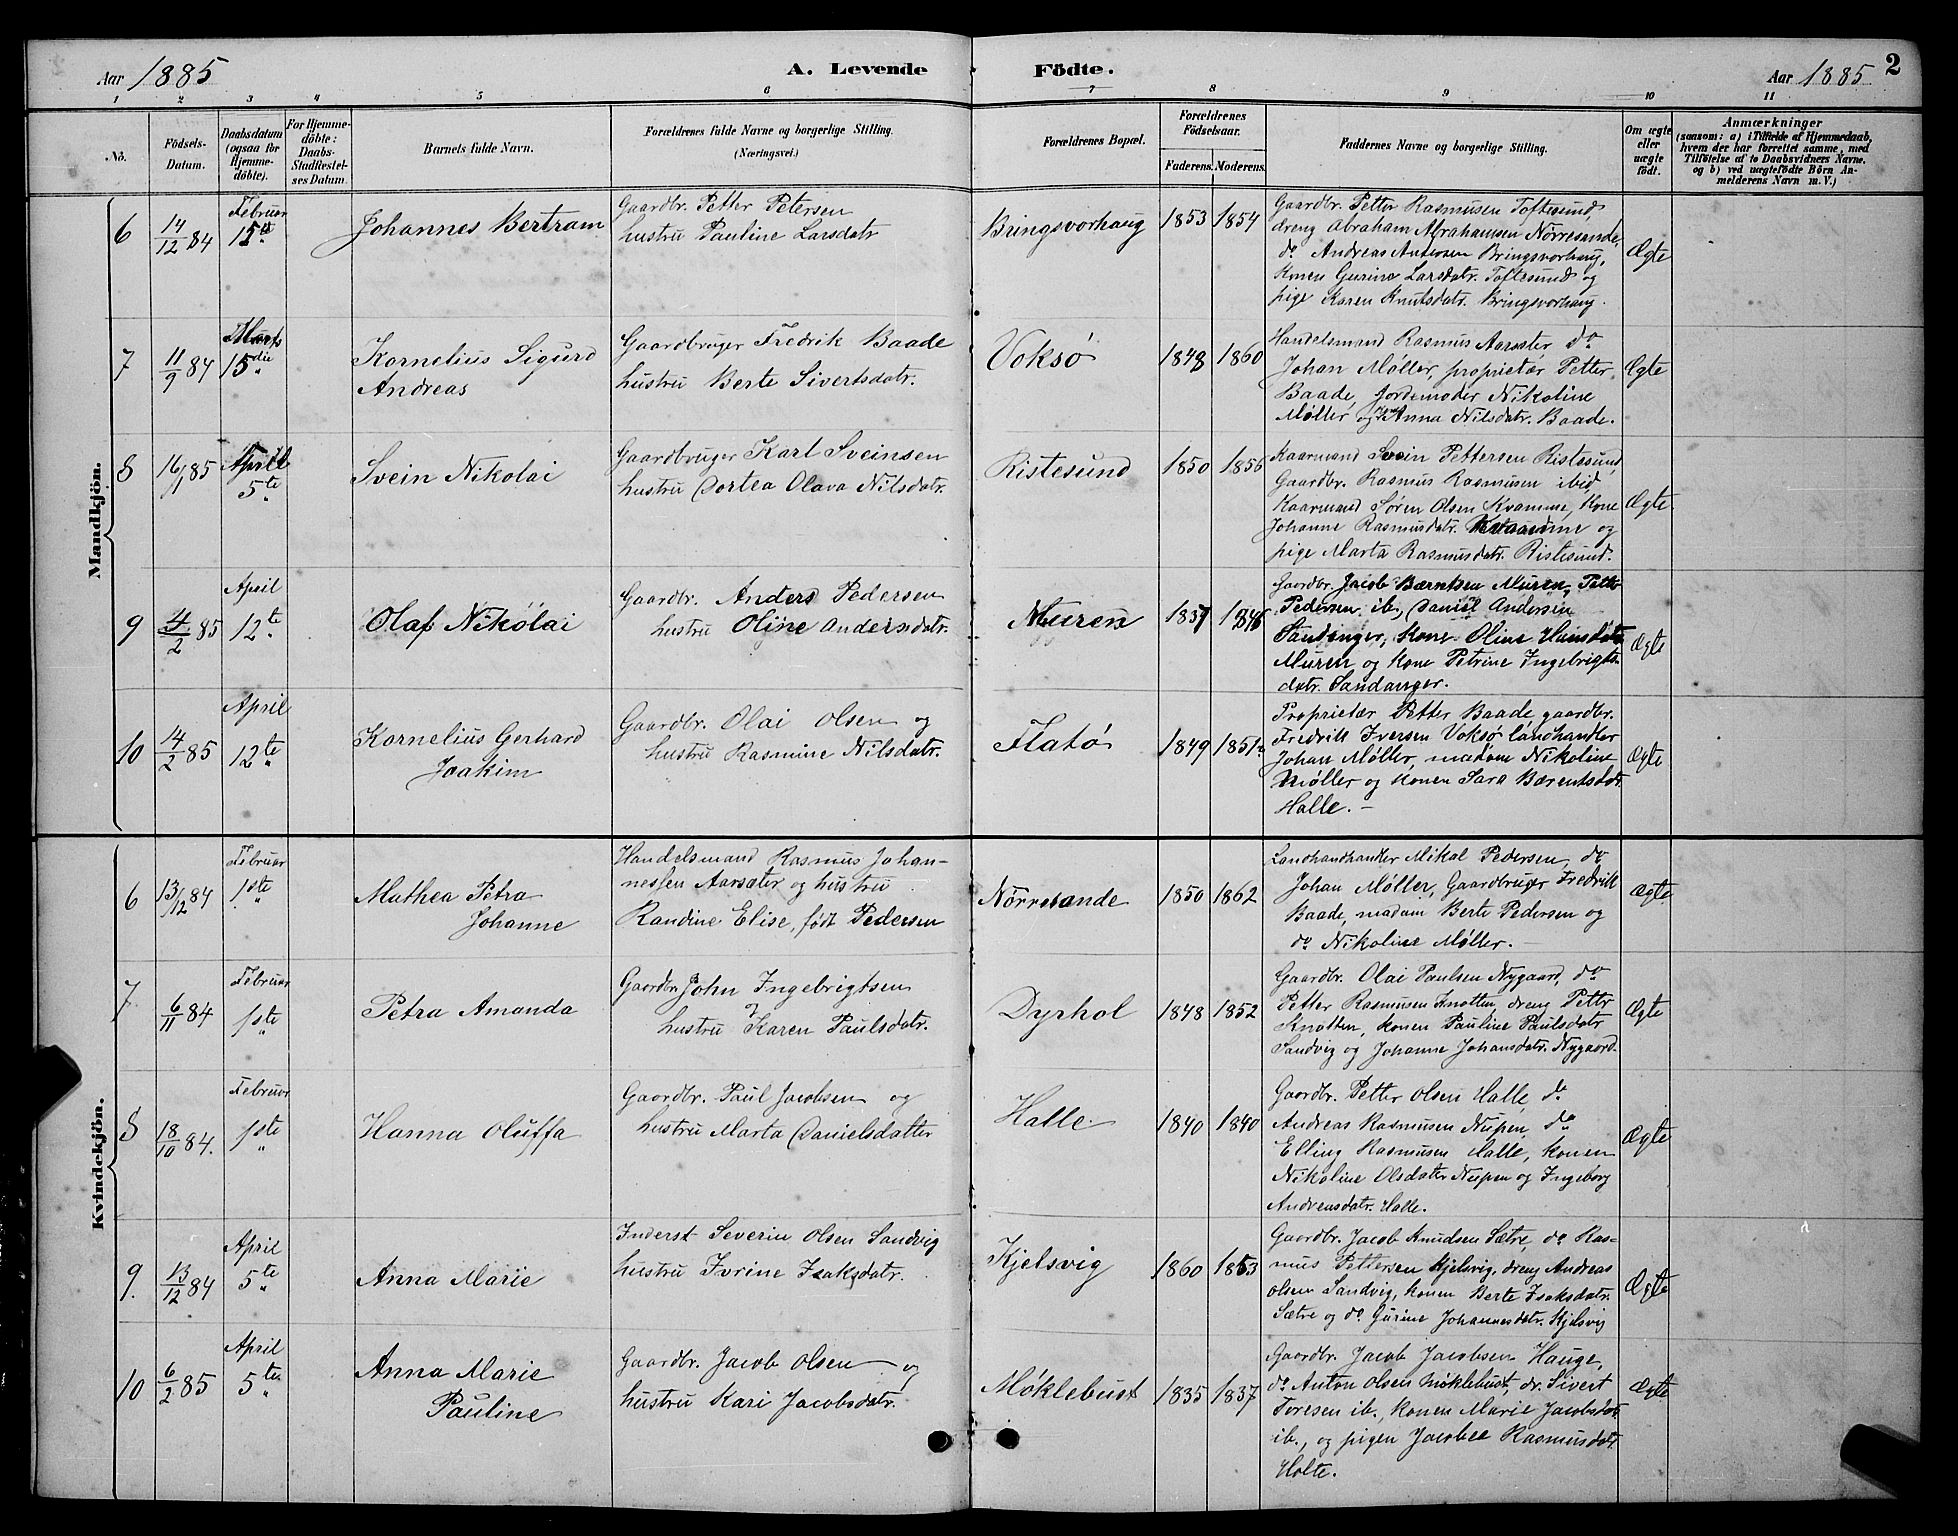 Aar 1885
A. Levende Födte.
Aar 1885
2
1 2 3 4 5 6 7 8 9 10 11
No.
Födsels-
Datum.
Daabsdatum
(ogsaa for
Hjemme-
döbte).
For Hjemme-
döbte:
Daabs-
Stadfestel-
ses Datum.
Barnets fulde Navn.
Forældrenes fulde Navne og borgerlige Stilling.
(Næringsvei.)
Forældrenes Bopæl.
Forældrenes
Födselsaar.
Faderens. Moderens.
Faddernes Navne og borgerlige Stilling.
Om ægte
eller
uægte
født.
Anmærkninger
(saasom: a) i Tilfælde af Hjemmedaab,
hvem der har forrettet samme, med
Tilføielse af to Daabsvidners Navne,
og b) ved uægtefödte Börn An-
melderens Navn m. V.)
Mandkjön.
6
14/12 84
Februar
15de
Johannes Bertram
Gaardbr. Petter Petersen
hustru Pauline Larsdatr
Bringsvorhaug
1853 1854
Gaardbr. Petter Rasmusen Toftesund,
dreng Abraham Abrahamsen Nörresande,
do Andreas Andersen Bringsvorhaug,
Konen Gurine Larsdatr. Toftesund og
pige Karen Knutsdatr. Bringsvorhaug.
Ægte
7
11/9 84
Marts
15die
Kornelius Sigurd
Andreas
Gaardbruger Fredrik Baade
hustru Berte Sivertsdatr.
Voksø
1848 1860
Handelsmand Rasmus Aarsæter do
Johan Møller, proprietær Petter
Baade, Jordemoder Nikoline
Møller og Anna Nilsdatr. Baade.
Ægte
8
16/1 85
April
5te
Svein Nikolai
Gaardbruger Karl Sveinsen
hustru Dortea Olava Nilsdatr.
Ristesund
1850 1856
Kaarmand Svein Pettersen Ristesund,
Gaardbr. Rasmus Rasmusen ibid,
Kaarmand Søren Olsen Kvamme, Kone
Johanne Rasmusdatr. Kvamme og
pige Marta Rasmusdatr. Ristesund.
Ægte
9
4/2 85
April
12te
Olaf Nikolai
Gaardbr. Anders Pedersen
hustru Oline Andersdatr.
Muren
1837 1846
Gaardbr. Jacob Bærntsen Muren, Petter
Pedersen ib., Daniel Andersen
Sandanger, Kone Oline Hansdatr
Muren og Kone Petrine Ingebrigts-
datr. Sandanger.
Ægte
10
14/2 85
April
12te
Kornelius Gerhard
Joakim
Gaardbr. Olai Olsen og
hustru Rasmine Nilsdatr.
Flatø
1849 1851
Proprietær Petter Baade, gaardbr.
Fredrik Iversen Voksø landhandler
Johan Møller, madam Nikoline
Møller og Konen Sara Bærentsdatr.
Halle. –
Ægte
Kvindekjön.
6
13/12 84
Februar
1ste
Mathea Petra
Johanne
Handelsmand Rasmus Johan-
nessen Aarsæter og hustru
Randine Elise, født Pedersen
Nörresande
1850 1862
Landhandhandler Mikal Pedersen, do
Johan Møller, Gaardbruger Fredrik
Baade, madam Berte Pedersen og
do Nikoline Møller. –
Ægte
7
6/11 84
Februar
1ste
Petra Amanda
Gaardbr. John Ingebrigtsen
og
hustru Karen Paulsdatr.
Dyrhol
1848 1852
Gaardbr. Olai Paulsen Nygaard, do
Petter Rasmusen Knotten, dreng Petter
Knotten, konen Pauline Paulsdatr
Sandvig og Johanne Johansdatr. Nygaard.
Ægte
8
18/10 84.
Februar
1ste
Hanna Oluffa
Gaardbr. Paul Jacobsen og
hustru Marta Danielsdatter
Halle
1840 1840
Gaardbr. Petter Olsen Halle, do
Andreas Rasmusen Nupen, do
Elling Rasmusen Halle, konen
Nikoline Olsdater Nupen og Ingeborg
Andreasdatr. Halle.
Ægte
9.
13/12 84
April
5te
Anna Marie
Inderst Severin Olsen Sandvig
hustru Ivrine Isaksdatr.
Kjelsvig
1860 1853
Gaardbr. Jacob Knudsen Sætre, do Ras-
mus Pettersen Kjelsvig, dreng Andreas
Olsen Sandvig, konen Berte Isaksdatr.
Sætre og do Gurine Johannesdatr. Kjelsvig
Ægte
10
6/2 85
April
5te
Anna Marie
Pauline
Gaardbr. Jacob Olsen og
hustru Kari Jacobsdatr.
Møklebust
1835 1837
Gaardbr. Jacob Jacobsen Hauge,
do Anton Olsen Møklebust, dr. Sivert
Toresen ib., konen Marie Jacobsdatr
ib., og pigen Jacobee Rasmusdatr.
Holte.
Ægte